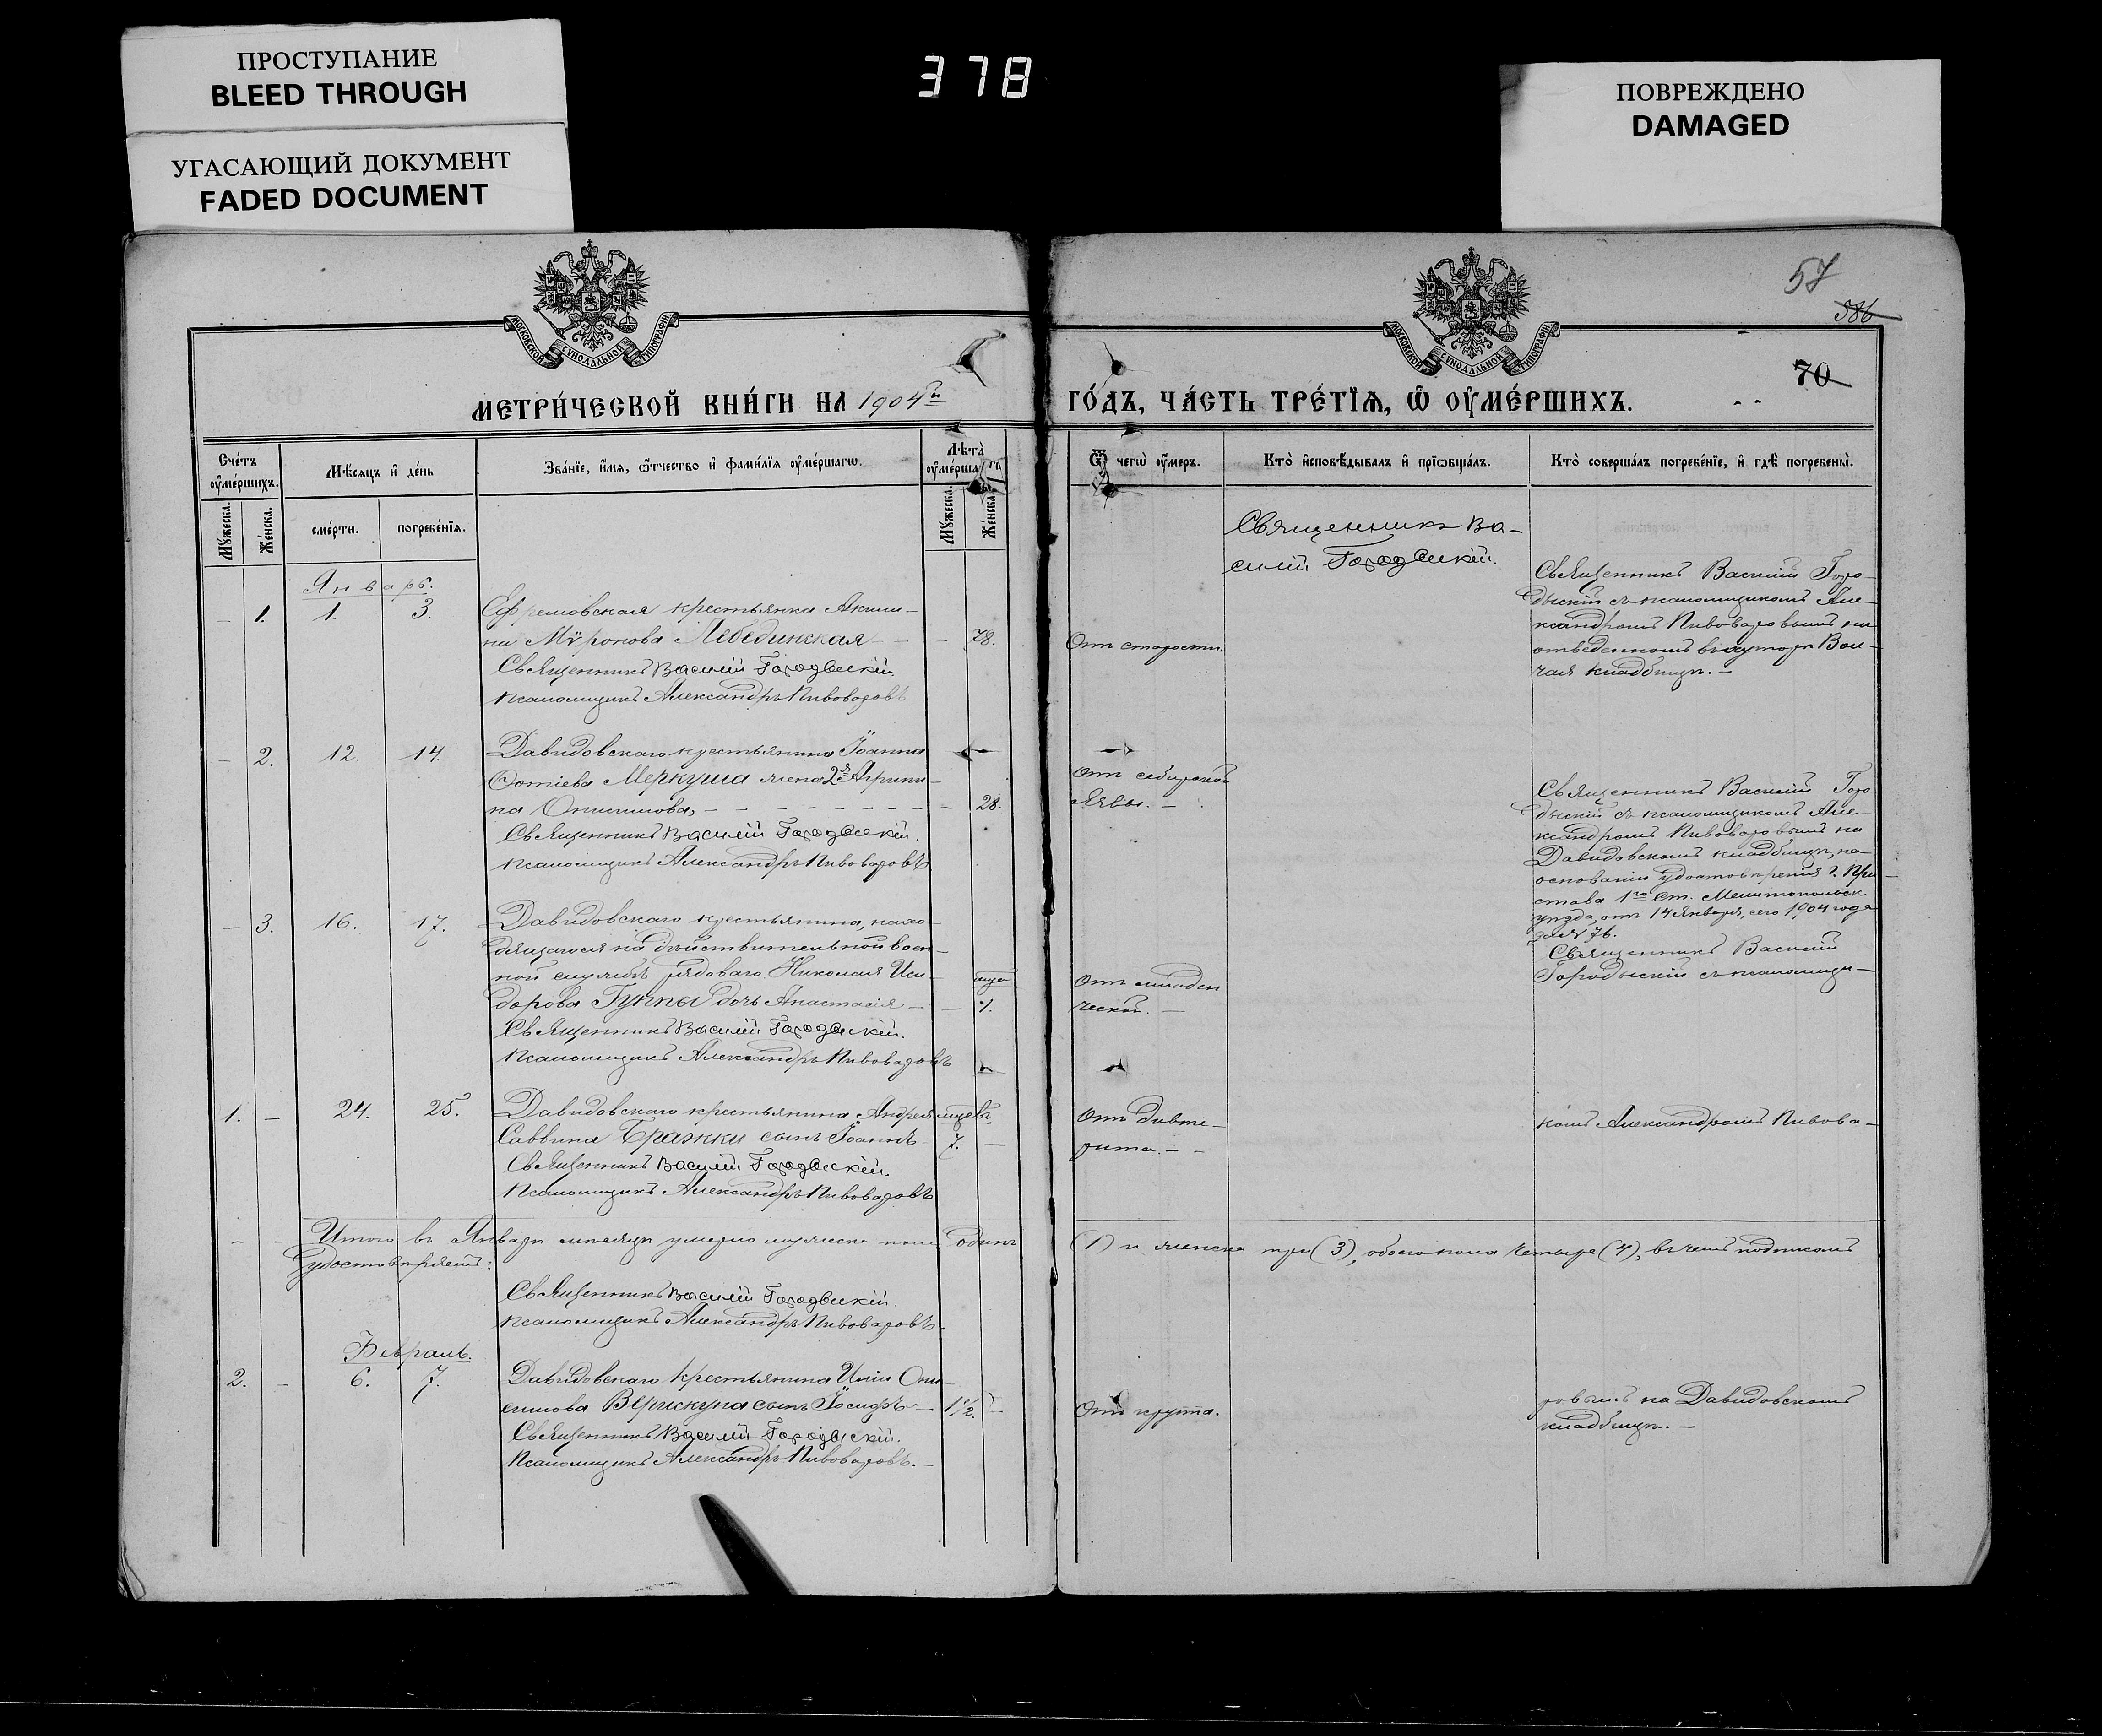 ПРОСТУПАНИЕ
BLEED THROUGH
УГАСАЮЩИЙ ДОКУМЕНТ
FADED DOCUMENT
378
ПОВРЕЖДЕНО
DAMAGED
57
586
70
МОСКОВСКОЙ СУНОДАЛЬНОЙ ТИПОГРАФІИ
МОСКОВСКОЙ СУНОДАЛЬНОЙ ТИПОГРАФІИ
МЕТРИ́ЧЕСКОЙ КНИ́ГИ НА 1904й
ГО́ДЪ, ЧА́СТЬ ТРЕ́ТЇѦ, Ѽ ОУ҆МЕ́РШИХЪ.
Сче́тъ оу҆ме́ршихъ.
Мꙋжеска.
Же́нска.
Мѣ́сяцъ и҆ де́нь
сме́рти.
погребе́нїя.
Зва́нїе, и҆́мя, ѻ҆́тчество и҆ фами́лїя оу҆ме́ршагѡ.
Лѣта̀ оу҆ме́рша
Мꙋжеска.
Же́нска
Ѿ чегѡ̀ оу҆́меръ.
Кто̀ и҆сповѣ́дывалъ и҆ прїѡбща́лъ.
Кто̀ соверша́лъ погребе́нїе, и҆ гдѣ̀ погребены̀.
Январь.
– 1. 1. 3. Ефремовская крестьянка Акили-
на Мѵронова Лебединская – – 78.
Священникъ Василій Городыскій.
Псаломщикъ Александръ Пивоваровъ
Отъ старости.
Священникъ Ва-
силій Городыскій.
Священникъ Василій Горо-
дыскій съ псаломщикомъ Але-
ксандромъ Пивоваровымъ на
отведенномъ въ хуторѣ Вол-
чая кладбищѣ. –
– 2. 12. 14. Давидовскаго крестьянина Іоанна
Фотіева Меркуша жена 2я Агрипи-
на – – – 28.
Священникъ Василій Городыскій.
Псаломщикъ Александръ Пивоваровъ
Отъ сибирской
язвы. –
Священникъ Василій Горо
дыскій съ псаломщикомъ Але-
ксандромъ Пивоваровымъ на
Давидовскомъ кладбищѣ, на
основаніи удостовѣренія г. При-
става 1го ст. Мелитопольск.
уѣзда, отъ 14 Января, сего 1904 года
за № 76.
– 3. 16. 17. Давидовскаго крестьянина, нахо-
дящагося на дѣйствительной воен-
ной службѣ рядоваго Николая Иси-
дорова дочь Анастасія – – 1.
Священникъ Василій Городыскій.
Псаломщикъ Александръ Пивоваровъ
Отъ младен
ческой. –
Священникъ Василій
Городыскій съ псаломщи-
1. – 24. 25. Давидовскаго крестьянина Андрея
Саввина Бражки сынъ Іоаннъ – 7. –
Священникъ Василій Городыскій.
Псаломщикъ Александръ Пивоваровъ
Отъ дифте-
рита. – –
комъ Александромъ Пивова-
– – Итого въ Январѣ мѣсяцѣ умерло мужеска пола одинъ
(1) и женска три (3), обоего пола четыре (4), въ чемъ подписомъ
удостовѣряемъ:
Священникъ Василій Городыскій.
Псаломщикъ Александръ Пивоваровъ.
Февраль.
2. – 6. 7. Давидовскаго крестьянина Иліи Они-
симова Верискуна сынъ Іосифъ – 1 1/2. –
Священникъ Василій Городыскій.
Псаломщикъ Александръ Пивоваровъ. –
Отъ крупа.
ровымъ на Давидовскомъ
кладбищѣ. –